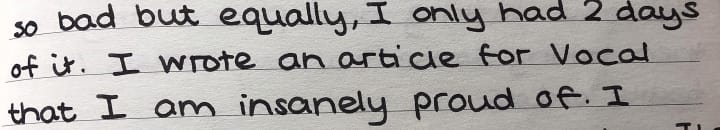 so bad but equally, I only had 2 days
of it. I wrote an article for Vocal
that I am insanely proud of. I